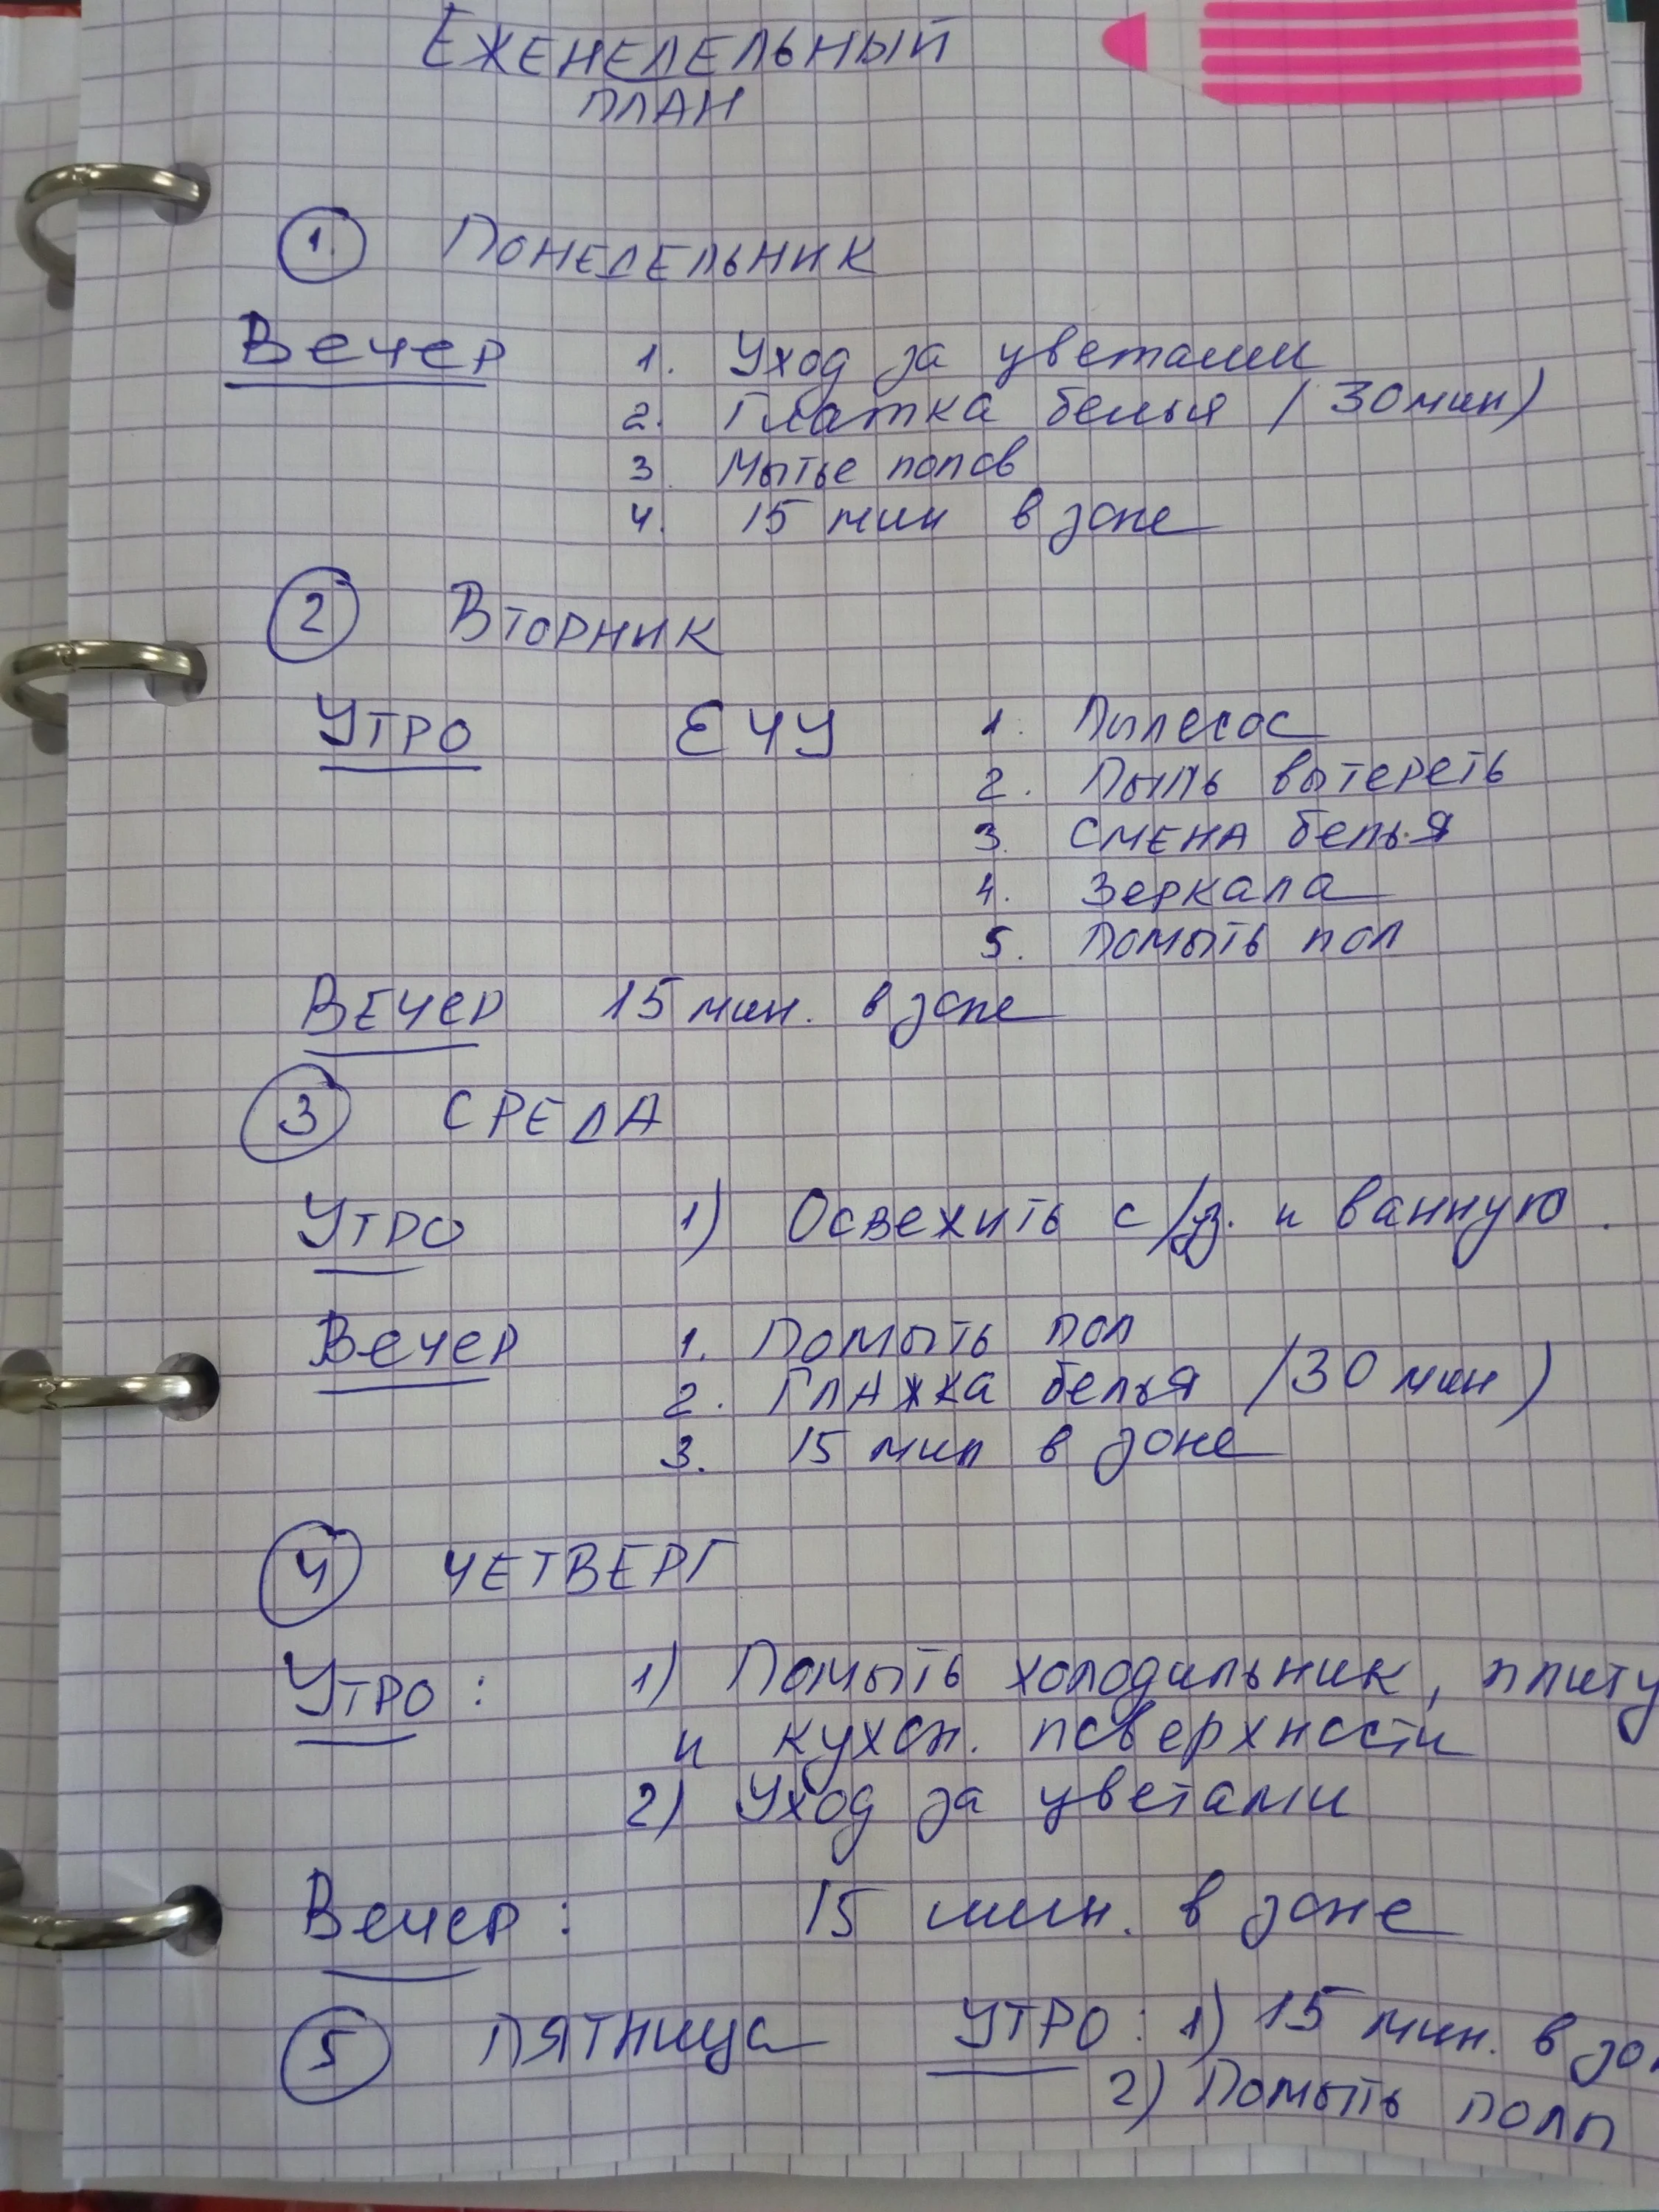 ЕЖЕНЕДЕЛЬНЫЙ
ПЛАН
1. ПОНЕДЕЛЬНИК
Вечер 1. Уход за цветами
2. Глажка белья (30 мин)
3. Мытье полов
4. 15 мин в зоне
2 ВТОРНИК
УТРО ЕЧУ 1. Пылесос
2. Пыль вытереть
3. СМЕНА белья
4. Зеркала
5. Помыть пол
ВЕЧЕР 15 мин. в зоне
3 СРЕДА
УТРО 1) Освежить с/уз. и ванную.
Вечер 1. Помыть пол
2. Глажка белья (30 мин)
3. 15 мин в зоне
4 ЧЕТВЕРГ
УТРО: 1) Помыть холодильник, плиту
и кухон. поверхности
2) Уход за цветами
Вечер: 15 мин. в зоне
5 ПЯТНИЦА УТРО: 1) 15 мин. в зон
2) Помыть полы